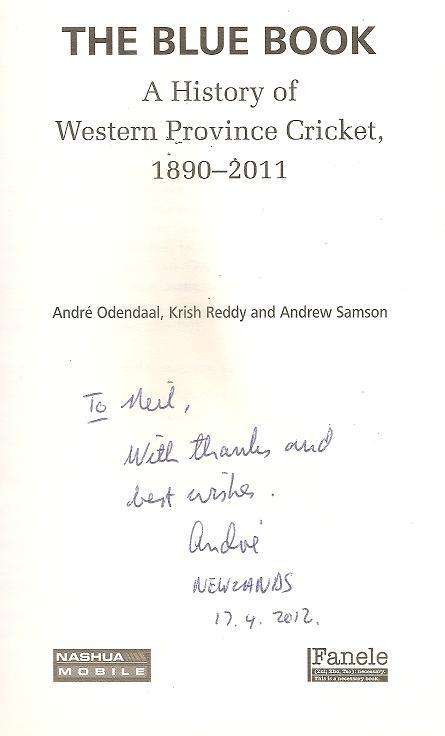 THE BLUE BOOK
A History of
Western Province Cricket,
1890–2011
André Odendaal, Krish Reddy and Andrew Samson
To Neil,
With thanks and
best wishes.
André
NEWLANDS
17.4.2012.
NASHUA
MOBILE
Fanele
This is a necessary book.